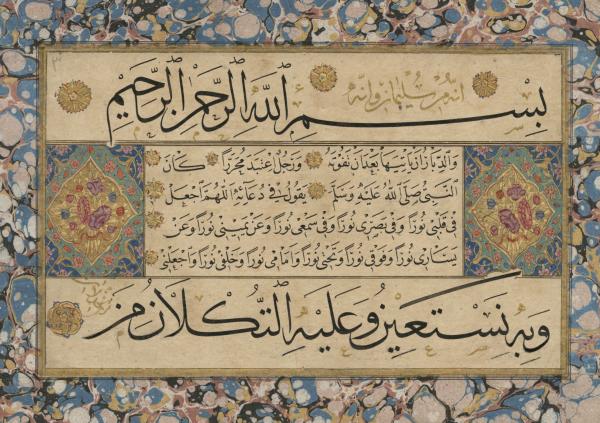 انه من سليمان وانه
بسم الله الرحمن الرحيم
والدبار ان ياتيها بعد ان تفوته ورجل اعتبد محررا كان
النبى صلى الله عليه وسلم يقول فى دعائه اللهم اجعل
فى قلبى نورا وفى بصرى نورا وفى سمعى نورا وعن يمينى نورا وعن
يسارى نورا وفوقى نورا وتحتى نورا وامامى نورا وخلفى نورا واجعلنى
وبه نستعين وعليه التكلان من